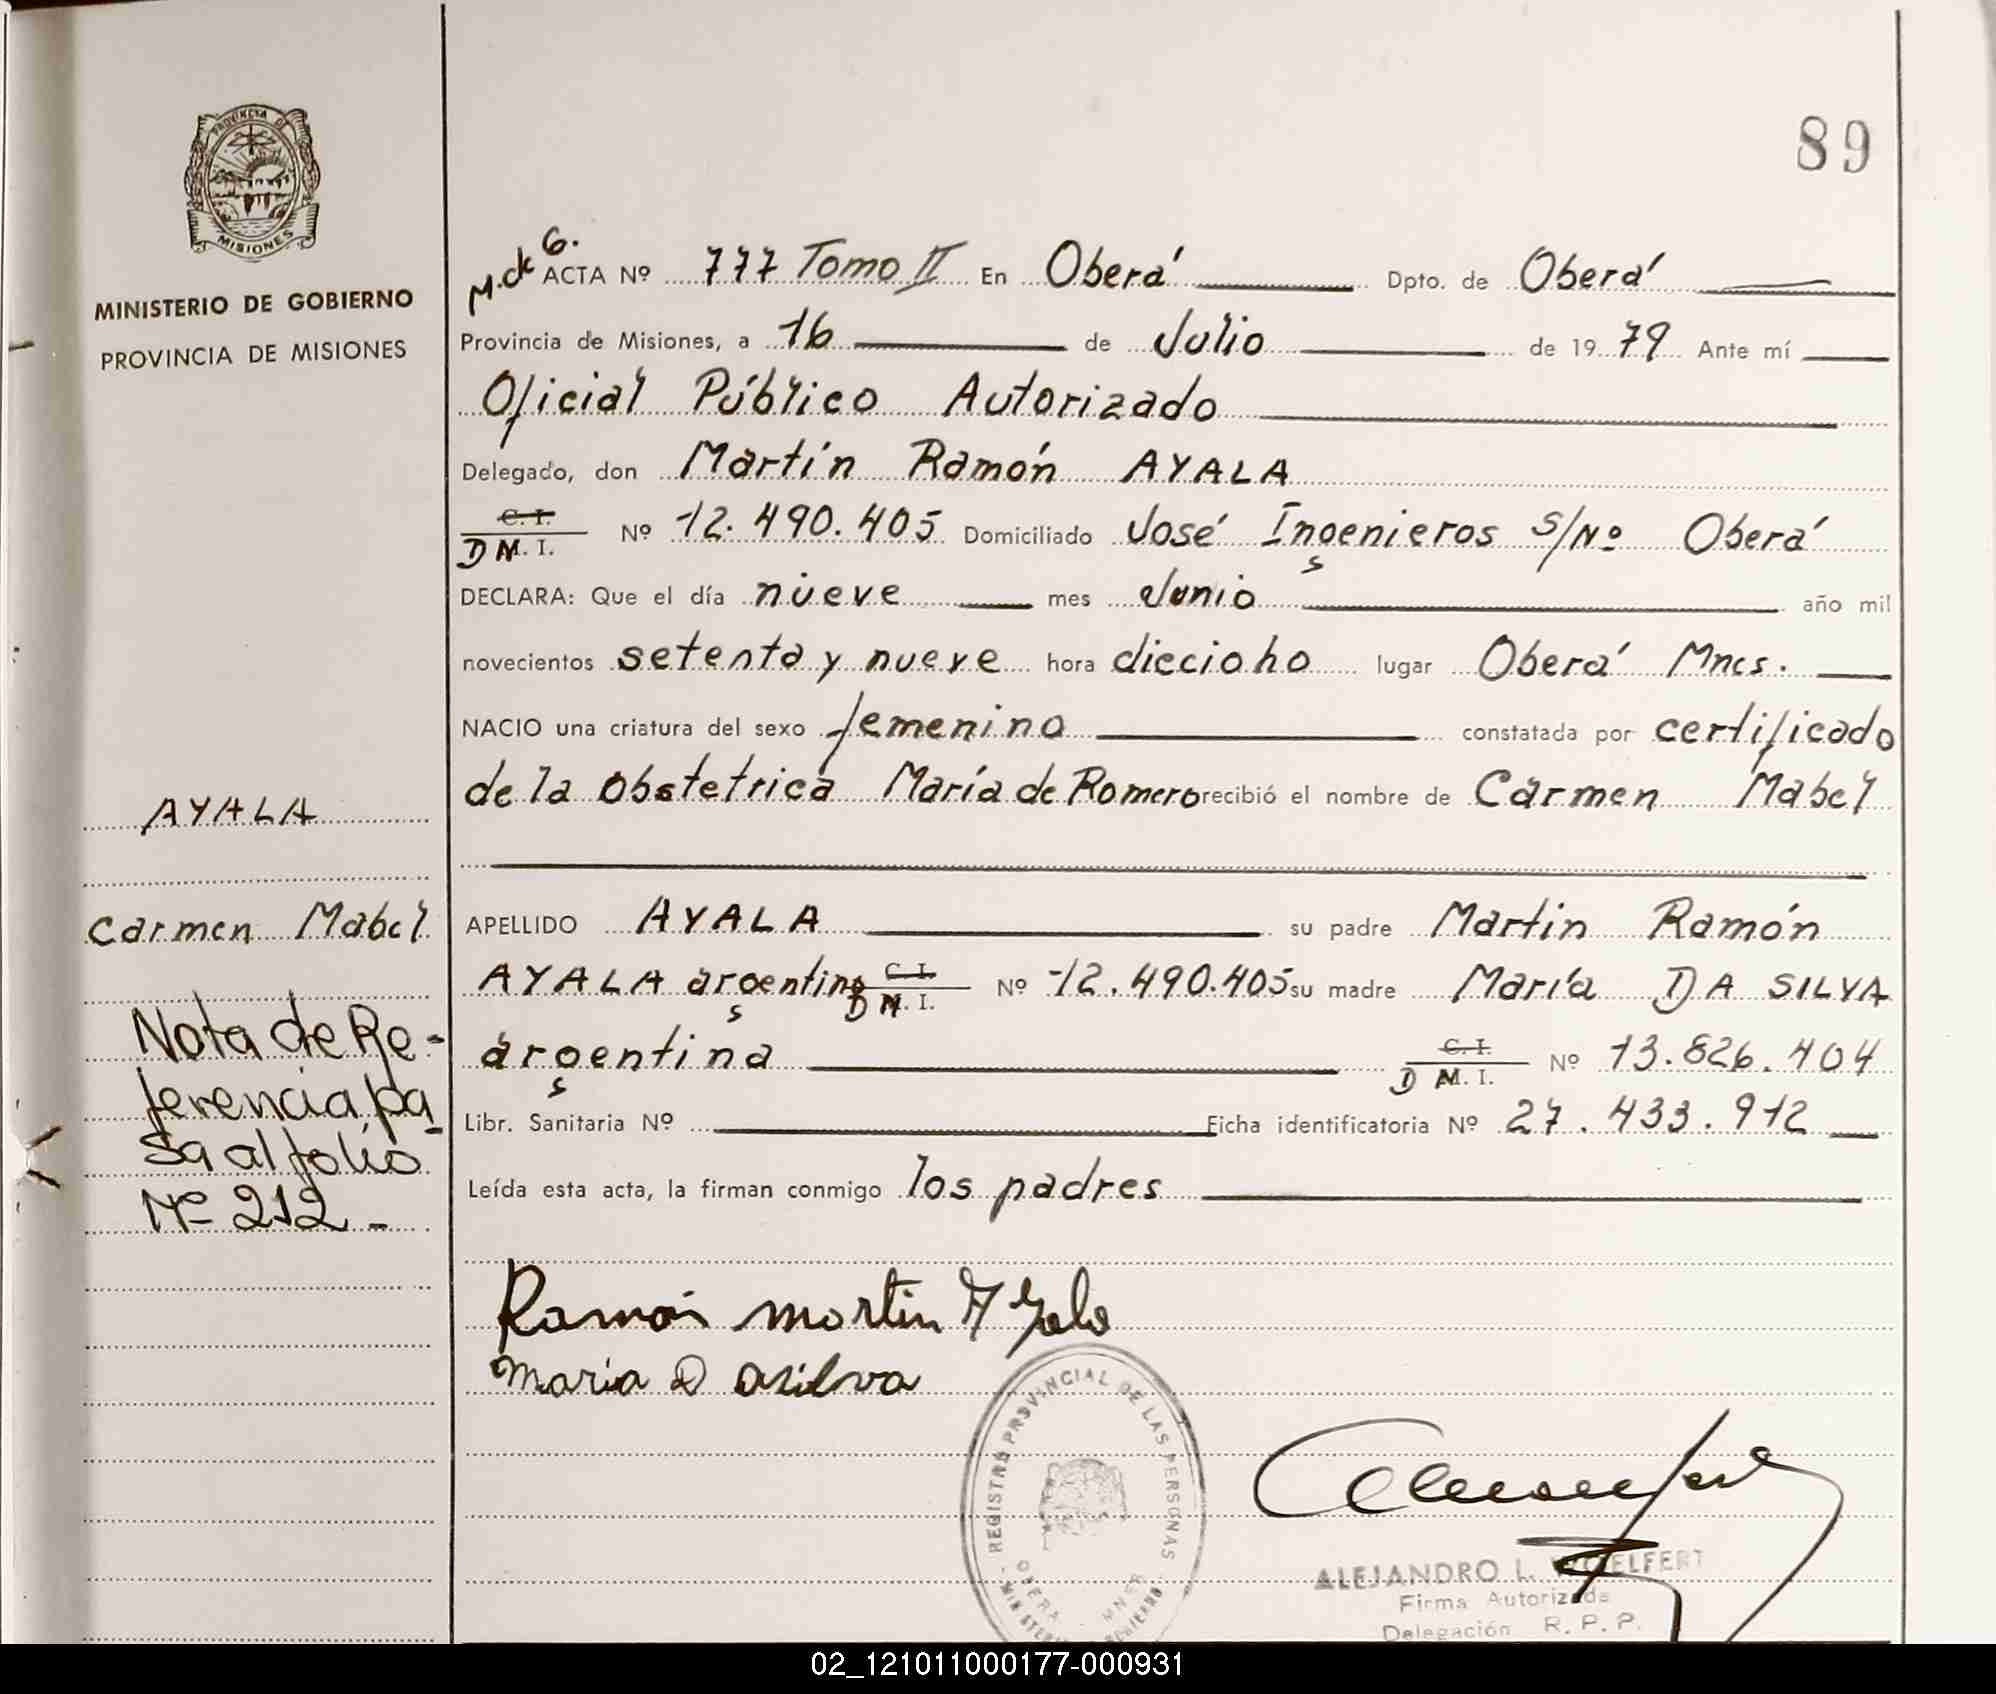 89
PROVINCIA DE
MISIONES
MINISTERIO DE GOBIERNO
PROVINCIA DE MISIONES
ACTA Nº 777 Tomo II En Oberá Dpto. de Oberá
Provincia de Misiones, a 16 de Julio de 1979 Ante mí
Oficial Público Autorizado
Delegado, don Martín Ramón AYALA
C. I.
D M. I. Nº 12.490.405 Domiciliado José Ingenieros S/Nº Oberá
DECLARA: Que el día nueve mes Junio año mil
novecientos setenta y nueve hora diecioho lugar Oberá Mnes.
NACIO una criatura del sexo femenino constatada por certificado
de la Obstetrica María de Romero recibió el nombre de Carmen Mabel
APELLIDO AYALA su padre Martin Ramón
AYALA argentino C. I. D M. I. Nº 12.490.405 su madre María DA SILVA
argentina C. I. D M. I. Nº 13.826.404
Libr. Sanitaria Nº Ficha identificatoria Nº 27.433.912
Leída esta acta, la firman conmigo los padres
AYALA
Carmen Mabel
Nota de Re-
ferencia pa
sa al folio
Nº 212 -
Ramón martin Ayala
maria D asilva
REGISTRO PROVINCIAL DE LAS PERSONAS
OBERA - MNES
ALEJANDRO L. WOELFERT
Firma Autorizada
Delegación R. P. P.
02_121011000177-000931